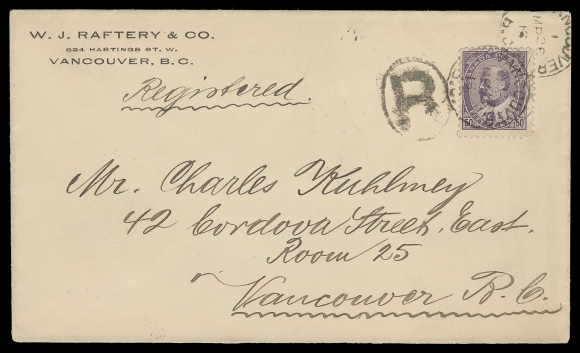 W. J. RAFTERY & CO.
324 HASTINGS ST. W.
VANCOUVER, B.C.
Registered.
R
50 50
Mr. Charles Kuhlmey
42 Cordova Street, East.
Room 25
Vancouver B. C.